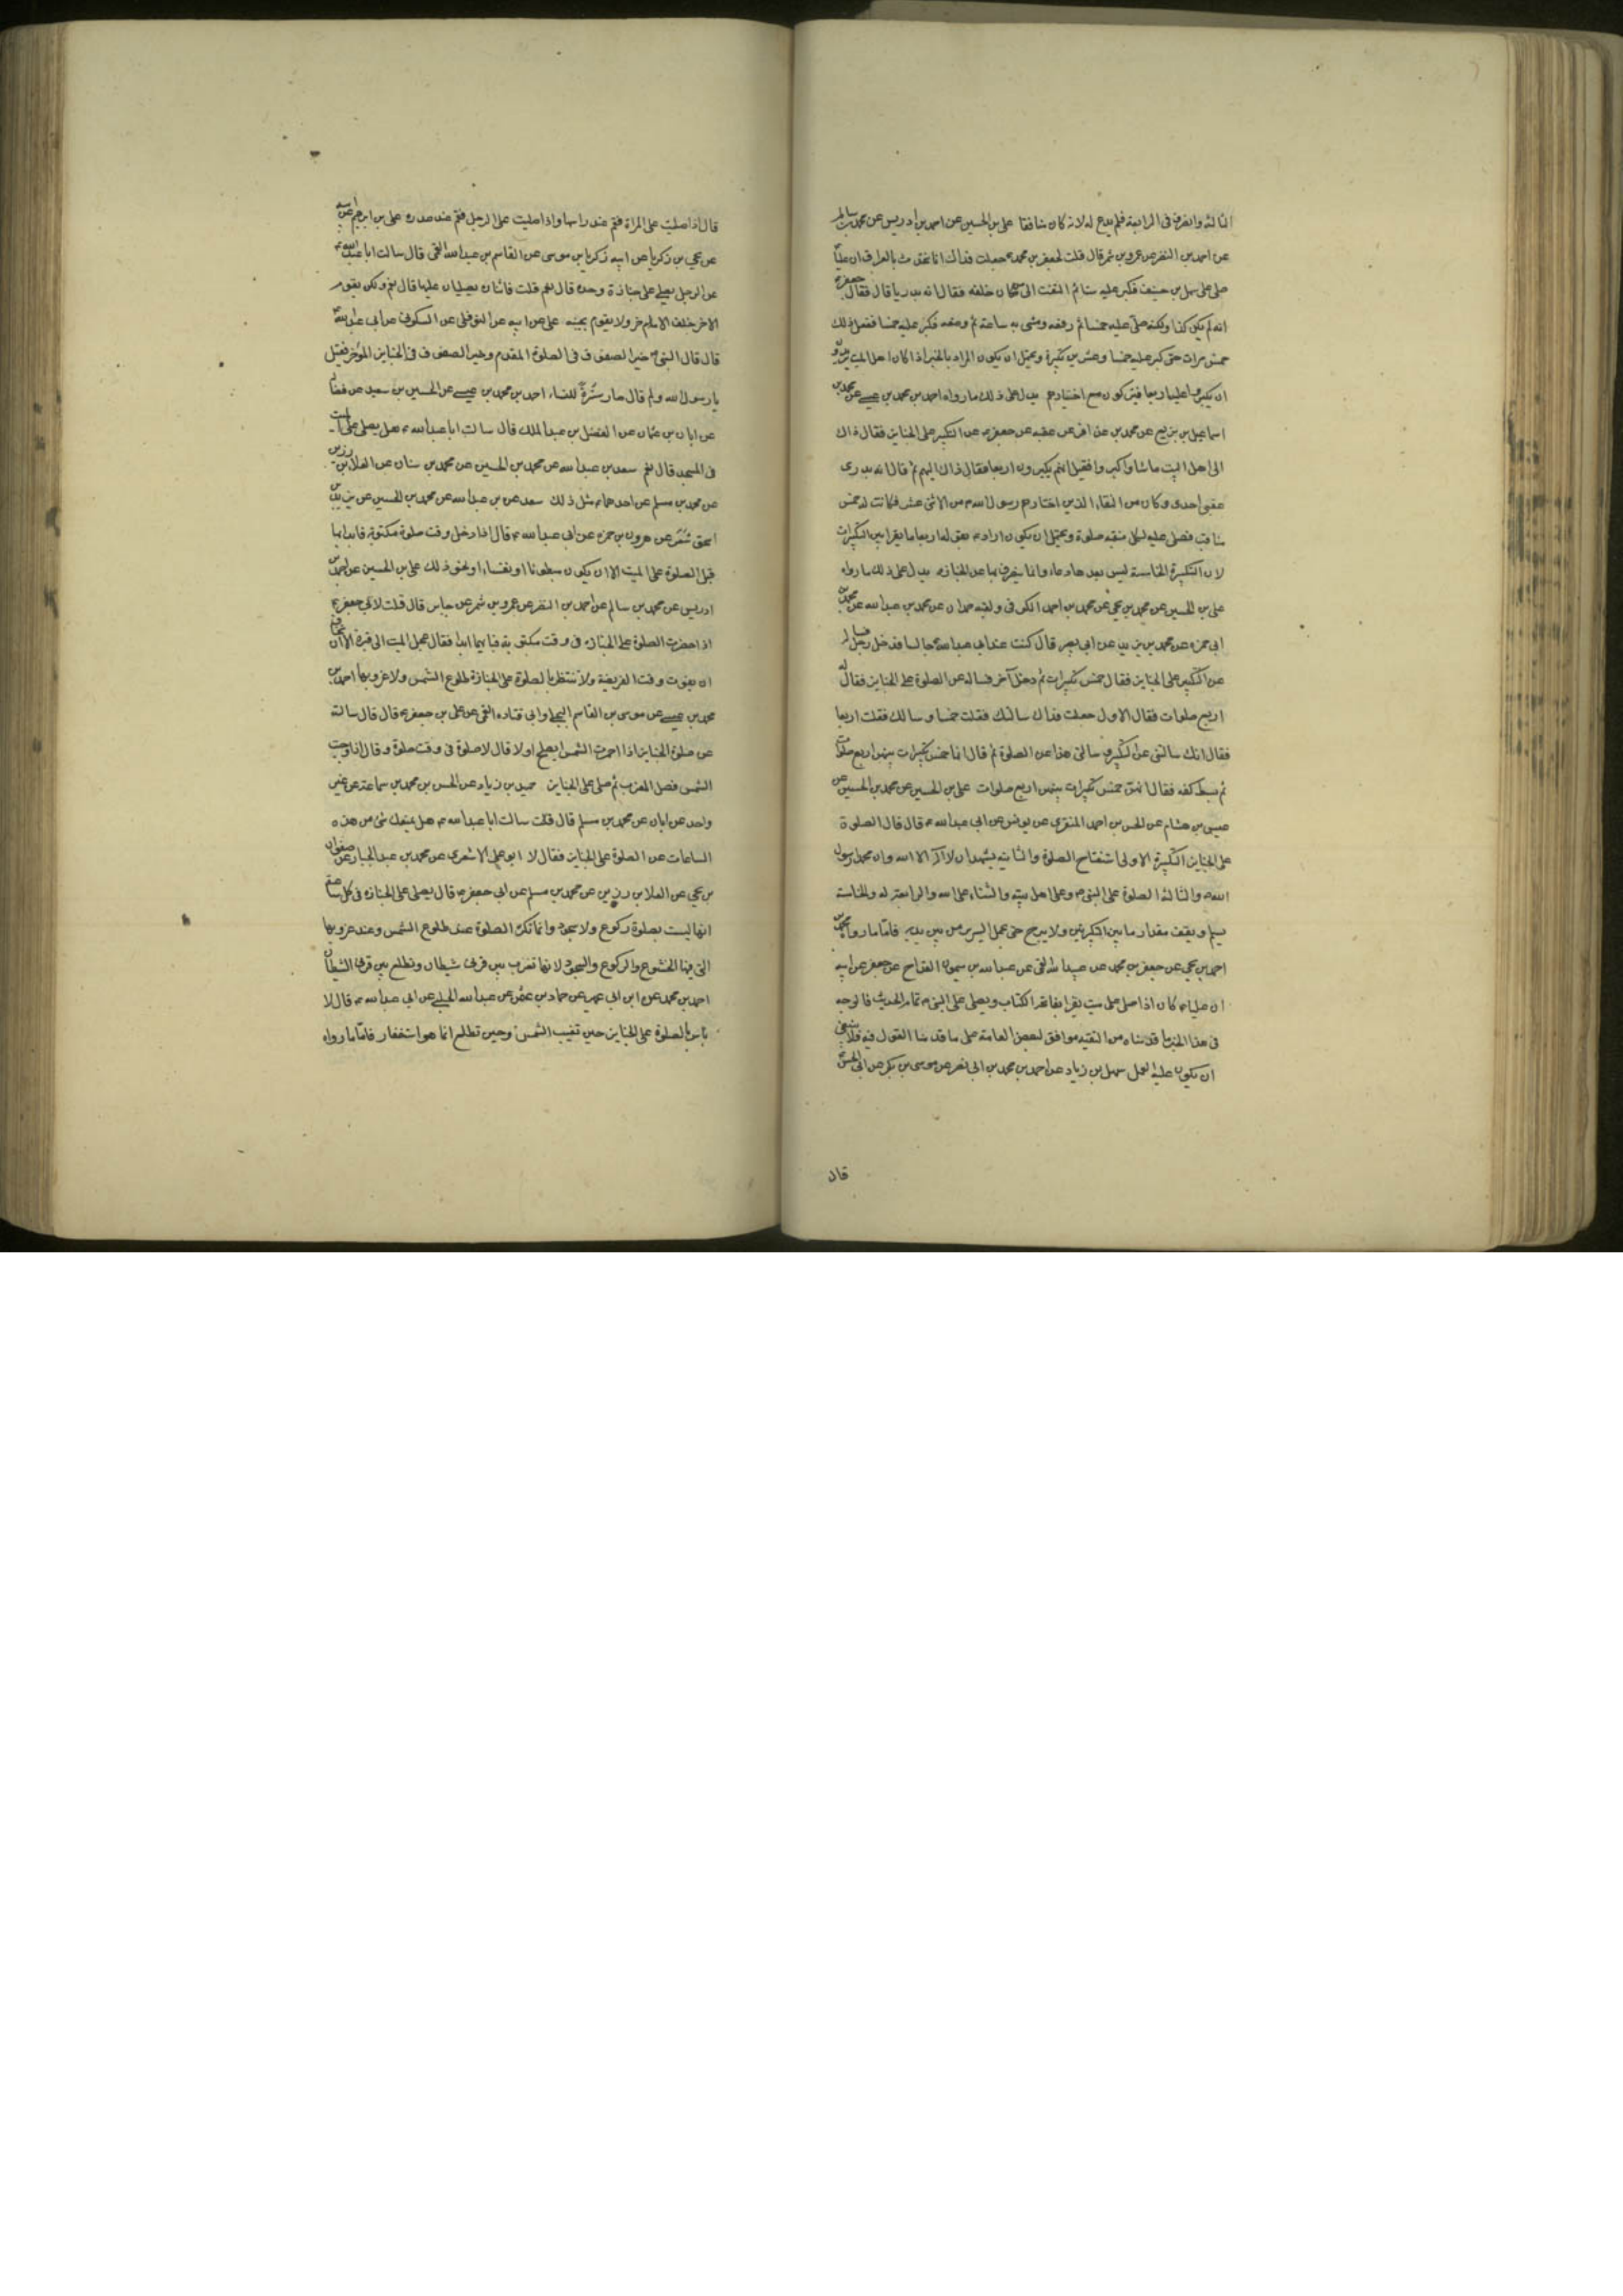 الثالثة وانصرف في الرابعة فلم يدع له لانه كان منافقا علي بن الحسين عن احمد بن ادريس عن محمد بن سالم
عن احمد بن النضر عن عمرو بن شمر قال قلت لجعفر بن محمد ع جعلت فداك انا نتحدث بالعراق ان عليا
صلى على سهل بن حنيف فكبر عليه ستا ثم التفت الى من كان خلفه فقال انه بدريا قال فقال جعفر ع
انه لم يكن كذا ولكنه صلى عليه خمسا ثم رفعه ومشى به ساعة ثم وضعه فكبر عليه خمسا ففعل ذلك
خمس مرات حتى كبر عليه خمسا وعشرين تكبيرة ويحتمل ان يكون المراد بالخبر اذا كان اهل الميت يريدون
ان يكبروا عليه اربعا فيتركون مع اختيارهم يدل على ذلك ما رواه احمد بن محمد بن عيسى عن محمد بن
اسماعيل بن بزيع عن محمد بن عذافر عن عقبه عن جعفر ع عن التكبير على الجنايز فقال ذاك
الى اهل الميت ماشاوا كبروا فقيل انهم يكبرون اربعا فقال ذاك اليهم ثم قال انه بدري
عقبي احدي وكان من النقباء الذين اختارهم رسول الله ص من الاثنى عشر فكانت له خمس
مناقب فصلى عليه لكل منقبه صلوة ويحتمل ان يكون اراد به يعني له اربعا ما يقرا بين التكبيرات
لان التكبيرة الخامسة ليس بعدها دعاء وانما ينصرف بها عن الجنازه يدل على ذلك ما رواه
علي بن الحسين عن محمد بن يحيى عن محمد بن احمد الكوفي ولقبه حمدان عن محمد بن عبدالله عن محمد بن
ابي حمزه عن محمد بن يزيد عن ابي بصير قال كنت عند ابي عبدالله ع جالسا فدخل رجل فساله
عن التكبير على الجنايز فقال خمس تكبيرات ثم دخل آخر فساله عن الصلوة على الجنايز فقال له
اربع صلوات فقال الاول جعلت فداك سالتك فقلت خمسا وسالك فقلت اربعا
فقال انك سالتني عن التكبير وسالني هذا عن الصلوة ثم قال انها خمس تكبيرات بينهن اربع صلوات
ثم بسط كفه فقال انهن خمس تكبيرات بينهن اربع صلوات علي بن الحسين عن محمد بن الحسين عن
عيسى بن هشام عن الحسن بن احمد المنقري عن يونس عن ابي عبدالله ع قال قال الصلوة
على الجنايز التكبيرة الاولى استفتاح الصلوة والثانيه يشهد ان لا اله الا الله وان محمدا رسول
الله ص والثالثة الصلوة على النبي ص وعلى اهل بيته والثناء على الله والرابعة له والخامسة
يسلم ويقف مقدار ما بين التكبيرتين ولا يبرح حتى يحمل السرير من بين يديه فاما ما رواه محمد بن
احمد بن يحيى عن جعفر بن محمد عن عبيدالله القمي عن عبدالله بن ميمون القداح عن جعفر عن ابيه
ان عليا ع كان اذا صلى على ميت يقرا بفاتحة الكتاب ويصلي على النبي ص تمام الحديث فالوجه
في هذا الخبر ما قدمناه من التقيه موافق لبعض العامة على ما قدمنا القول فيه فلا ينبغي
ان يكون عليه العمل سهل بن زياد عن احمد بن محمد بن ابي نصر عن موسى بن بكر عن ابي الحسن ع
قال
قال اذا صليت على المراة فقم عند راسها واذا صليت على الرجل فقم عند صدره علي بن ابرهيم عن ابيه
عن يحيى بن زكريا عن ابيه زكريا بن موسى عن القاسم بن عبدالله القمي قال سالت ابا عبدالله ع
عن الرجل يصلي على جنازة وحده قال نعم قلت فاثنان يصليان عليها قال نعم ولكن يقوم
الاخر خلف الاخر ولا يقوم بجنبه علي عن ابيه عن النوفلي عن السكوني عن ابي عبدالله ع
قال قال النبي ص خير الصفوف في الصلوة المقدم وخير الصفوف في الجنايز المؤخر فقيل
يا رسول الله ولم قال صار سترة للنساء احمد بن محمد بن عيسى عن الحسين بن سعيد عن فضاله
عن ابان بن عثمان عن الفضل بن عبد الملك قال سالت ابا عبدالله ع هل يصلى على الميت
في المسجد قال نعم سعد بن عبدالله عن محمد بن الحسين عن محمد بن سنان عن العلا بن رزين
عن محمد بن مسلم عن احدهما ع مثل ذلك سعد عن بن عبدالله عن محمد بن الحسين عن يزيد بن
اسحق شعر عن هرون بن حمزه عن ابي عبدالله ع قال اذا دخل وقت صلوة مكتوبة فابدا بها
قبل الصلوة على الميت الا ان يكون مبطونا او نفساء او نحو ذلك علي بن الحسين عن احمد بن
ادريس عن محمد بن سالم عن احمد بن النضر عن عمرو بن شمر عن جابر قال قلت لابي جعفر ع
اذا حضرت الصلوة على الجنازه في وقت مكتوبة فبايهما ابدا فقال عجل الميت الى قبره الا ان تخاف
ان يفوت وقت الفريضة ولا تنتظر بالصلوة على الجنازة طلوع الشمس ولا غروبها احمد بن
محمد بن عيسى عن موسى بن القاسم البجلي وابي قتاده القمي عن علي بن جعفر ع قال قال سالته
عن صلوة الجنايز اذا احمرت الشمس ايصلح اولا قال لا صلوة في وقت صلوة وقال اذا وجبت
الشمس فصل المغرب ثم صل على الجنايز حميد بن زياد عن الحسن بن محمد بن سماعة عن غير
واحد عن ابان عن محمد بن مسلم قال قلت سالت ابا عبدالله ع هل يمنعك شئ من هذه
الساعات عن الصلوة على الجنايز فقال لا ابو علي الاشعري عن محمد بن عبد الجبار عن صفوان
بن يحيى عن العلا بن رزين عن محمد بن مسلم عن ابي جعفر ع قال يصلى على الجنازه في كل ساعة
انها ليست بصلوة ركوع ولا سجود وانما تكره الصلوة عند طلوع الشمس وعند غروبها
التي فيها الخشوع والركوع والسجود لانها تغرب بين قرني شيطان وتطلع بين قرني الشيطان
احمد بن محمد عن ابن ابي عمير عن حماد بن عثمن عن عبدالله الحلبي عن ابي عبدالله ع قال لا
باس بالصلوة على الجنايز حين تغيب الشمس وحين تطلع انما هو استغفار فاما ما رواه